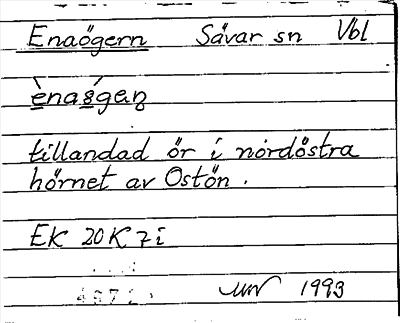 Enaögern Sävar sn Vbl
tillandad ör i nordöstra
hörnet av Ostön.
EK 20K 7i
1993